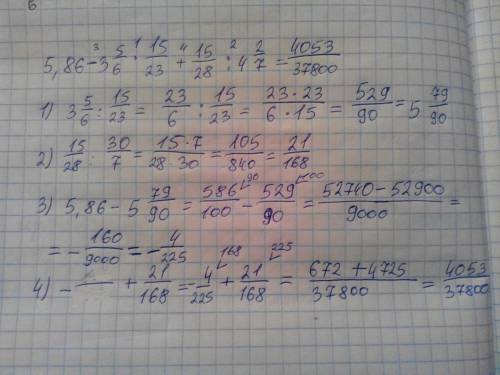 6
5,86 - 3 5/6 : 15/23 + 15/28 : 4 2/7 = 4053/37800
3 1 4 2
1) 3 5/6 : 15/23 = 23/6 : 15/23 = 23·23/6·15 = 529/90 = 5 79/90
2) 15/28 : 30/7 = 15·7/28·30 = 105/840 = 21/168
3) 5,86 - 5 79/90 = 586/100 (90) - 529/90 (100) = 52740-52900/9000 =
= - 160/9000 = - 4/225
4) - — + 21/168 = - 4/225 (168) + 21/168 (225) = 672 + 4725/37800 = 4053/37800